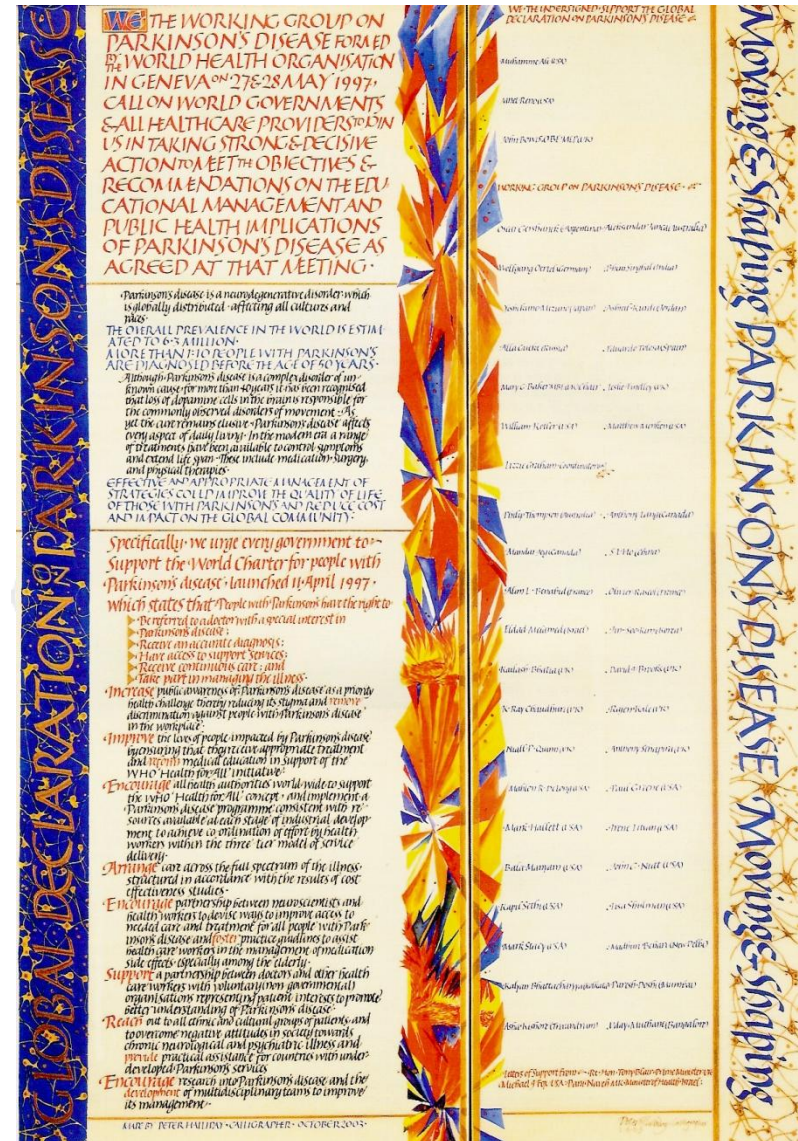 GLOBAL DECLARATION ON PARKINSON'S DISEASE
WE THE WORKING GROUP ON
PARKINSON'S DISEASE FORMED
BY THE WORLD HEALTH ORGANISATION
IN GENEVA ON 27 & 28 MAY 1997,
CALL ON WORLD GOVERNMENTS
& ALL HEALTHCARE PROVIDERS TO JOIN
US IN TAKING STRONG & DECISIVE
ACTION TO MEET THE OBJECTIVES &
RECOMMENDATIONS ON THE EDU
CATIONAL MANAGEMENT AND
PUBLIC HEALTH IMPLICATIONS
OF PARKINSON'S DISEASE AS
AGREED AT THAT MEETING·
·Parkinson's disease is a neurodegenerative disorder·which
is globally distributed·affecting all cultures and
races·
THE OVERALL PREVALENCE IN THE WORLD IS ESTIM
ATED TO 6·3 MILLION·
MORE THAN 1:10 PEOPLE WITH PARKINSON'S
ARE DIAGNOSED BEFORE THE AGE OF 50 YEARS·
·Although·Parkinson's disease is a complex disorder of un-
known cause·for more than 40 years it has been recognised
that loss of dopamine cells in the brain is responsible for
the commonly observed disorders of movement·As
yet the cure remains elusive·Parkinson's disease affects
every aspect of daily living·In the modern era a range
of treatments have been available to control symptoms
and extend life span·These include medication·Surgery,
and physical therapies·
EFFECTIVE AND APPROPRIATE MANAGEMENT OF
STRATEGIES COULD IMPROVE THE QUALITY OF LIFE
OF THOSE WITH PARKINSON'S AND REDUCE COST
AND IMPACT ON THE GLOBAL COMMUNITY·
Specifically·we urge every government to~
Support the World Charter for people with
Parkinson's disease·launched 11·April 1997·
which states that·People with Parkinson's have the right to
·Be referred to a doctor with a special interest in
Parkinson's disease;
·Receive an accurate diagnosis;
·Have access to support services;
·Receive continuous care; and
·Take part in managing the illness·
·Increase public awareness of Parkinson's disease as a priority
health challenge thereby reducing its stigma and remove
discrimination against people with Parkinson's disease
in the workplace;
·Improve the lives of people impacted by Parkinson's disease
by ensuring that they receive appropriate treatment
and reform medical education in support of the
WHO 'Health for All' initiative·
·Encourage all health authorities world-wide to support
the WHO 'Health for All' concept·and implement a
Parkinson's disease programme consistent with re-
sources available at each stage of industrial develop
ment to achieve co ordination of effort by health
workers within the three tier model of service
delivery·
·Arrange care across the full spectrum of the illness·
structured in accordance with the results of cost
effectiveness studies·
·Encourage partnership between neuroscientists and
health workers to devise ways to improve access to
needed care and treatment for all people with Park
inson's disease and foster practice guidlines to assist
health care workers in the management of medication
side effects·especially among the elderly·
·Support a partnership between doctors and other health
care workers with voluntary (non governmental)
organisations representing patient interests to promote
better understanding of Parkinson's disease·
·Reach out to all ethnic and cultural groups of patients·and
to overcome negative attitudes in society towards
chronic neurological and psychiatric illness and
provide practical assistance for countries with under-
developed Parkinson's services
·Encourage research into Parkinson's disease and the
development of multidisciplinary teams to improve
its management·
MADE BY PETER HALLIDAY·CALLIGRAPHER·OCTOBER 2003·
WE·THE UNDERSIGNED·SUPPORT THE GLOBAL
DECLARATION ON PARKINSON'S DISEASE
Muhamme Ali (USA)
Janet Reno (USA)
WORKING GROUP ON PARKINSON'S DISEASE·
Oscar Gershanik (Argentina)
Wolfgang Oertel (Germany) ·Bhim Singhal (India)
·Ashraf Kurdi (Jordan)
·Eduardo Tolosa (Spain)
Mary G Baker ·Leslie Findley (UK)
William Koller (USA) ·Matthew Menken (USA)
Lizzie Graham·Coordinator
Philip Thompson (Australia) ·Anthony Lang (Canada)
(Canada) (China)
Alim L·Benabid (France) ·Olivier Rascol (France)
Eldad Melamed (Israel)
Kailash Bhatia (UK) ·David J Brooks (UK)
K·Ray Chaudhuri (UK)
Niall P·Quinn (UK) ·Anthony Schapira (UK)
Mahlon R·DeLong (USA) ·Paul Greene (USA)
Mark Hallett (USA) ·Irene Litvan (USA)
Bala Manyam (USA) ·John G·Nutt (USA)
Kapil Sethi (USA) ·Lisa Shulman (USA)
Mark Stacy (USA) ·Madhuri Behari (New Delhi)
Kalyan Bhattacharya (Kolkata) ·Paresh·Doshi (Mumbai)
Asha Kishore (Trivandrum) ·Uday·Muthane (Bangalore)
Letters of Support from~·Rt·Hon·Tony Blair·Prime Minister UK
·Michael J Fox USA·
Moving & Shaping PARKINSON'S DISEASE Moving & Shaping